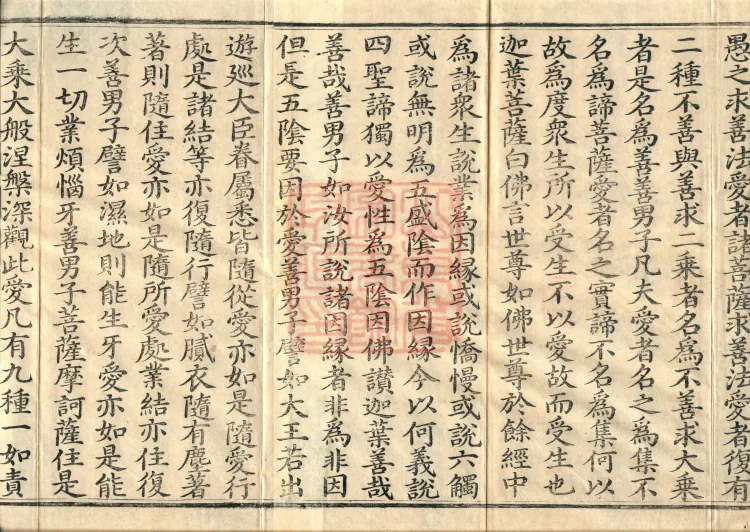 愚之求善法愛者諸菩薩求善法愛者復有
二種不善與善求二乘者名為不善求大乘
者是名為善善男子凡夫愛者名之為集不
名為諦菩薩愛者名之實諦不名為集何以
故為度衆生所以受生不以愛故而受生也
迦葉菩薩白佛言世尊如佛世尊於餘經中
為諸衆生說業為因緣或說憍慢或說六觸
或說無明為五盛陰而作因緣今以何義說
四聖諦獨以愛性為五陰因佛讚迦葉善哉
善哉善男子如汝所說諸因緣者非為非因
但是五陰要因於愛善男子譬如大王若出
遊廵大臣眷屬悉皆隨從愛亦如是隨愛行
處是諸結等亦復隨行譬如膩衣隨有塵著
著則隨住愛亦如是隨所愛處業結亦住復
次善男子譬如濕地則能生牙愛亦如是能
生一切業煩惱牙善男子菩薩摩訶薩住是
大乘大般涅槃深觀此愛凡有九種一如責